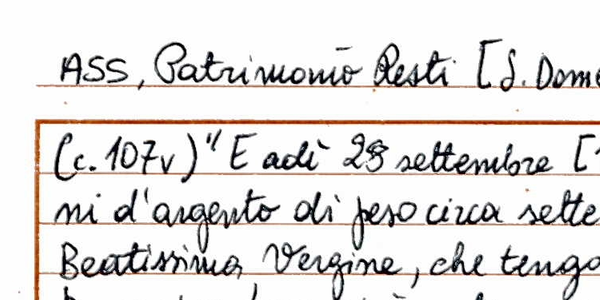 ASS, Patrimonio Resti [S. Dome
(c. 107v) "E adì 28 settembre [
ni d'argento di peso circa sette
Beatissima Vergine, che tengo